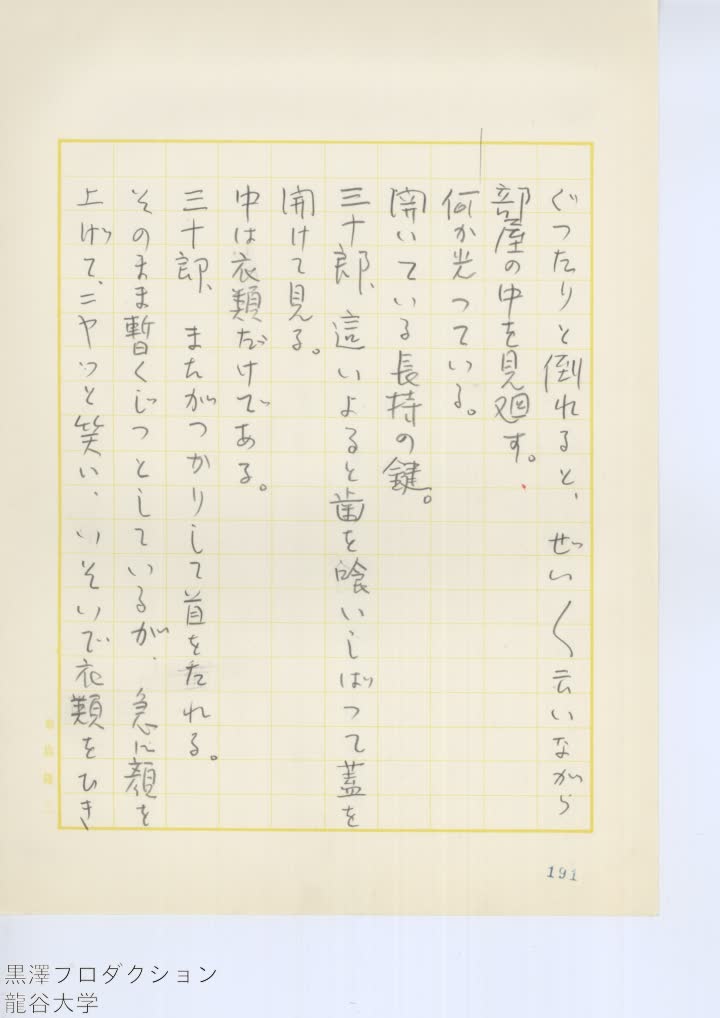 ぐつたりと倒れると、ぜい〳〵云いながら
部屋の中を見廻す。
何か光つている。
開いている長持の鍵。
三十郎、這いよると歯を喰いしばつて蓋を
開けて見る。
中は衣類だけである。
三十郎、またがつかりして首をたれる。
そのまま暫くじつとしているが、急に顔を
上げて、ニヤッと笑い、いそいで衣類をひき
191
黒澤プロダクション
龍谷大学